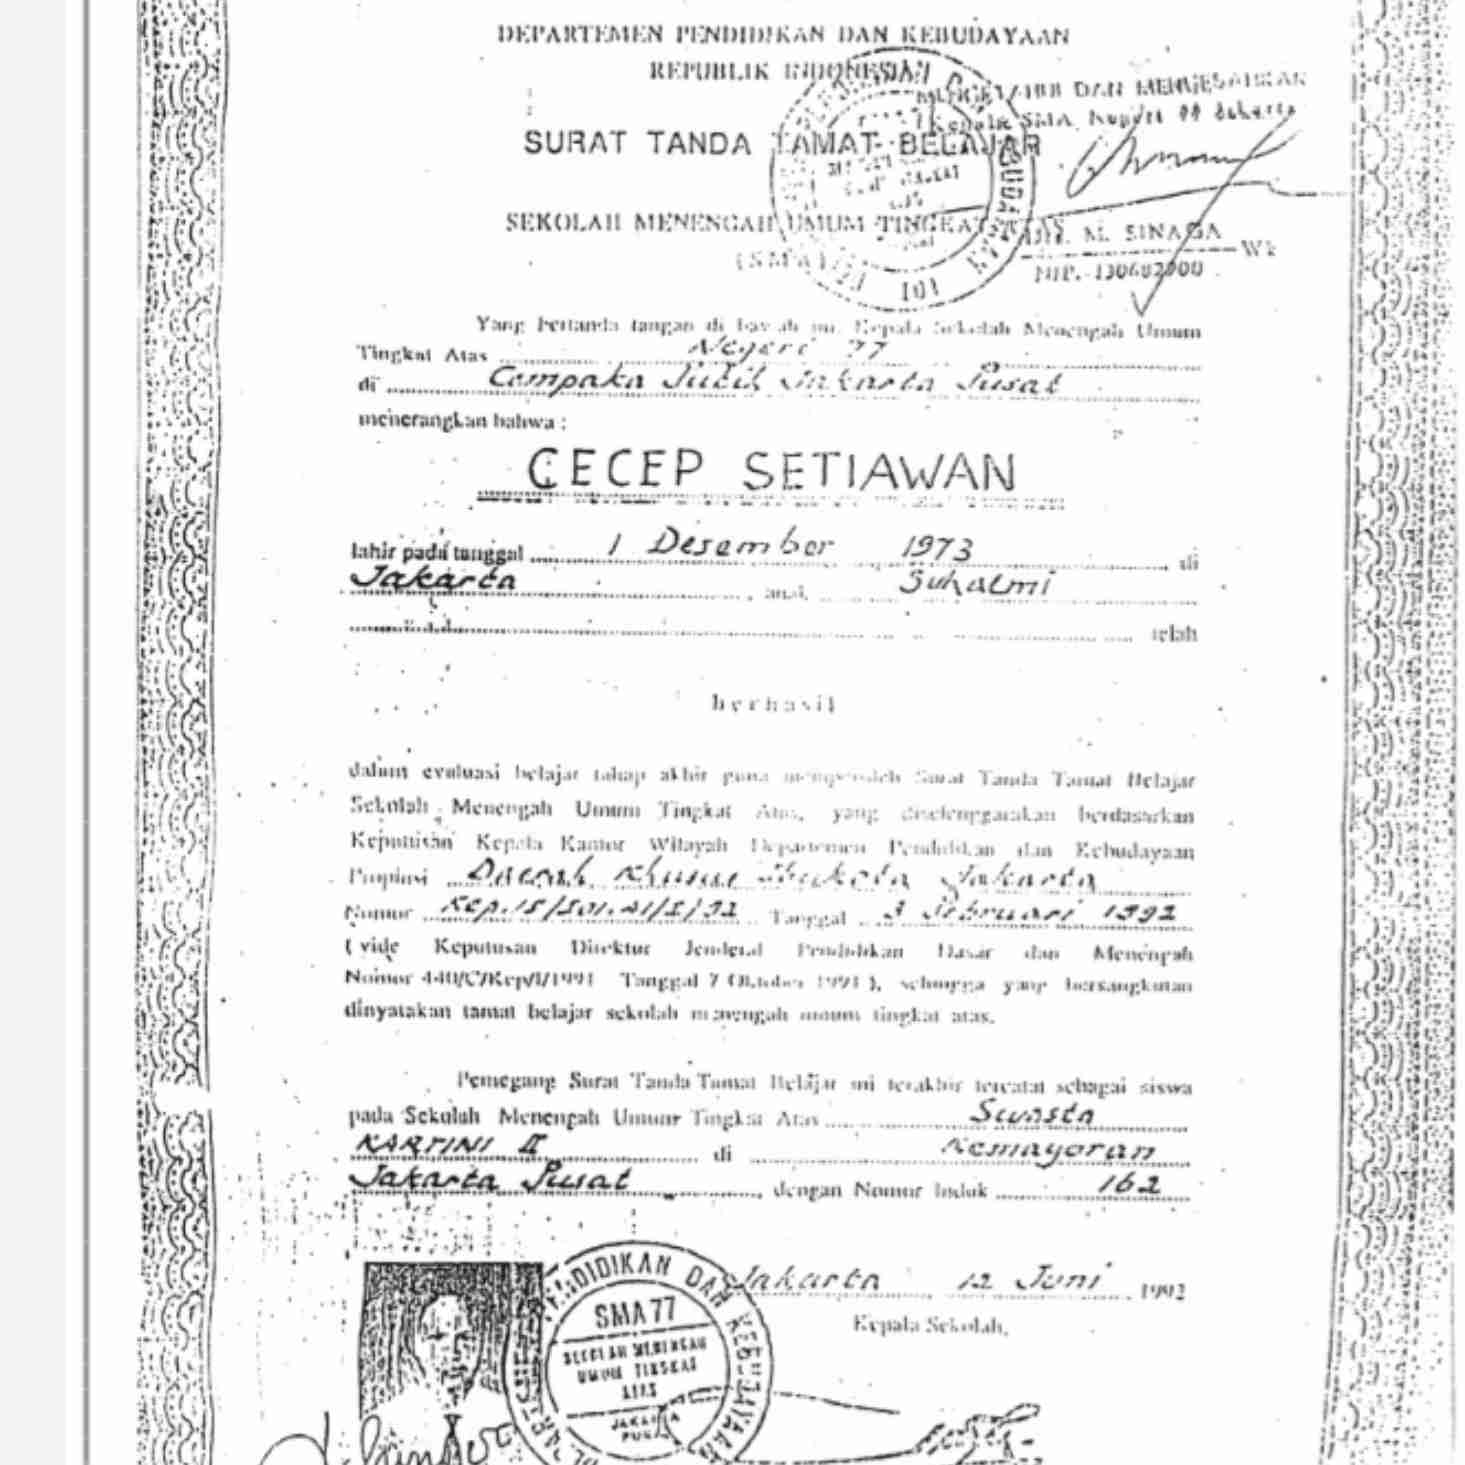 DEPARTEMEN PENDIDIKAN DAN KEBUDAYAAN
REPUBLIK INDONESIA
MENGETAHUI DAN MENGESAHKAN
Kepala SMA Negeri 77 Jakarta
SURAT TANDA TAMAT BELAJAR
M. SINAGA
NIP. 130682900
SEKOLAH MENENGAH UMUM TINGKAT ATAS
(SMA)
Yang bertanda tangan di bawah ini, Kepala Sekolah Menengah Umum
Tingkat Atas Negeri 77
di Cempaka Putih Jakarta Pusat
menerangkan bahwa :
CECEP SETIAWAN
lahir pada tanggal 1 Desember 1973 di
Jakarta, anak Suhalmi
telah
berhasil
dalam evaluasi belajar tahap akhir guna memperoleh Surat Tanda Tamat Belajar
Sekolah Menengah Umum Tingkat Atas, yang diselenggarakan berdasarkan
Keputusan Kepala Kantor Wilayah Departemen Pendidikan dan Kebudayaan
Propinsi Daerah Khusus Ibukota Jakarta
Nomor Tanggal 3 Februari 1992
( vide Keputusan Direktur Jenderal Pendidikan Dasar dan Menengah
Nomor 440/C/Kep/I/1991 Tanggal 7 Oktober 1991 ), sehingga yang bersangkutan
dinyatakan tamat belajar sekolah menengah umum tingkat atas.
Pemegang Surat Tanda Tamat Belajar ini terakhir tercatat sebagai siswa
pada Sekolah Menengah Umum Tingkat Atas Swasta
KARTINI II di Kemayoran
Jakarta Pusat, dengan Nomor Induk 162
Jakarta 12 Juni 1992
Kepala Sekolah,
PENDIDIKAN DAN KEBUDAYAAN
SMA 77
SEKOLAH MENENGAH
UMUM TINGKAT
ATAS
JAKARTA
PUSAT